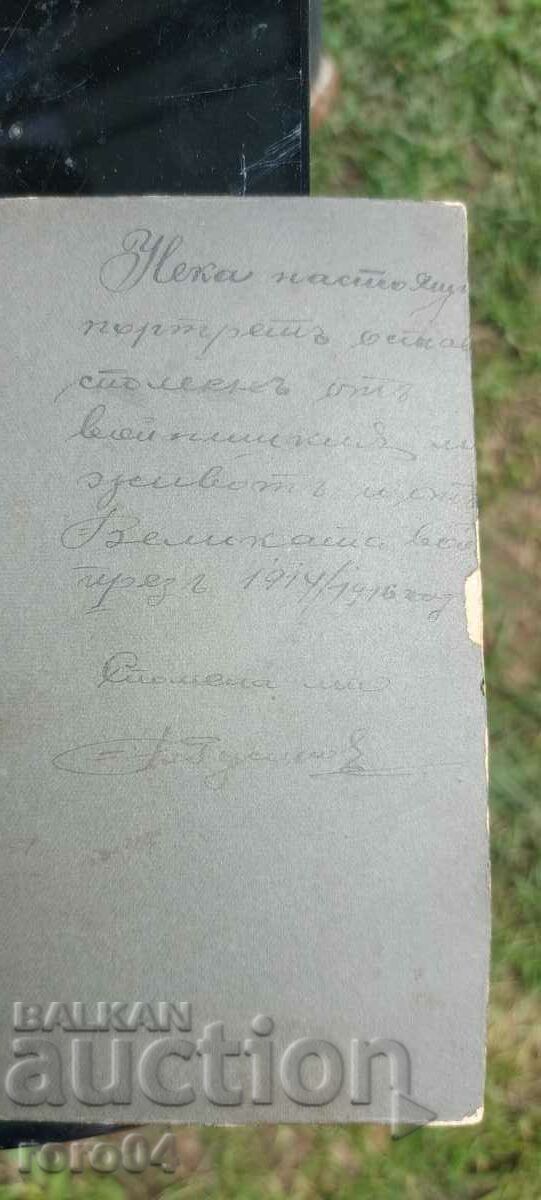 Нека настоящи
портретъ остав
споменъ отъ
войнишкия ми
животъ и отъ
Великата вой
презъ 1914/1916 год
Спомена ми
BALKAN
auction
roro04